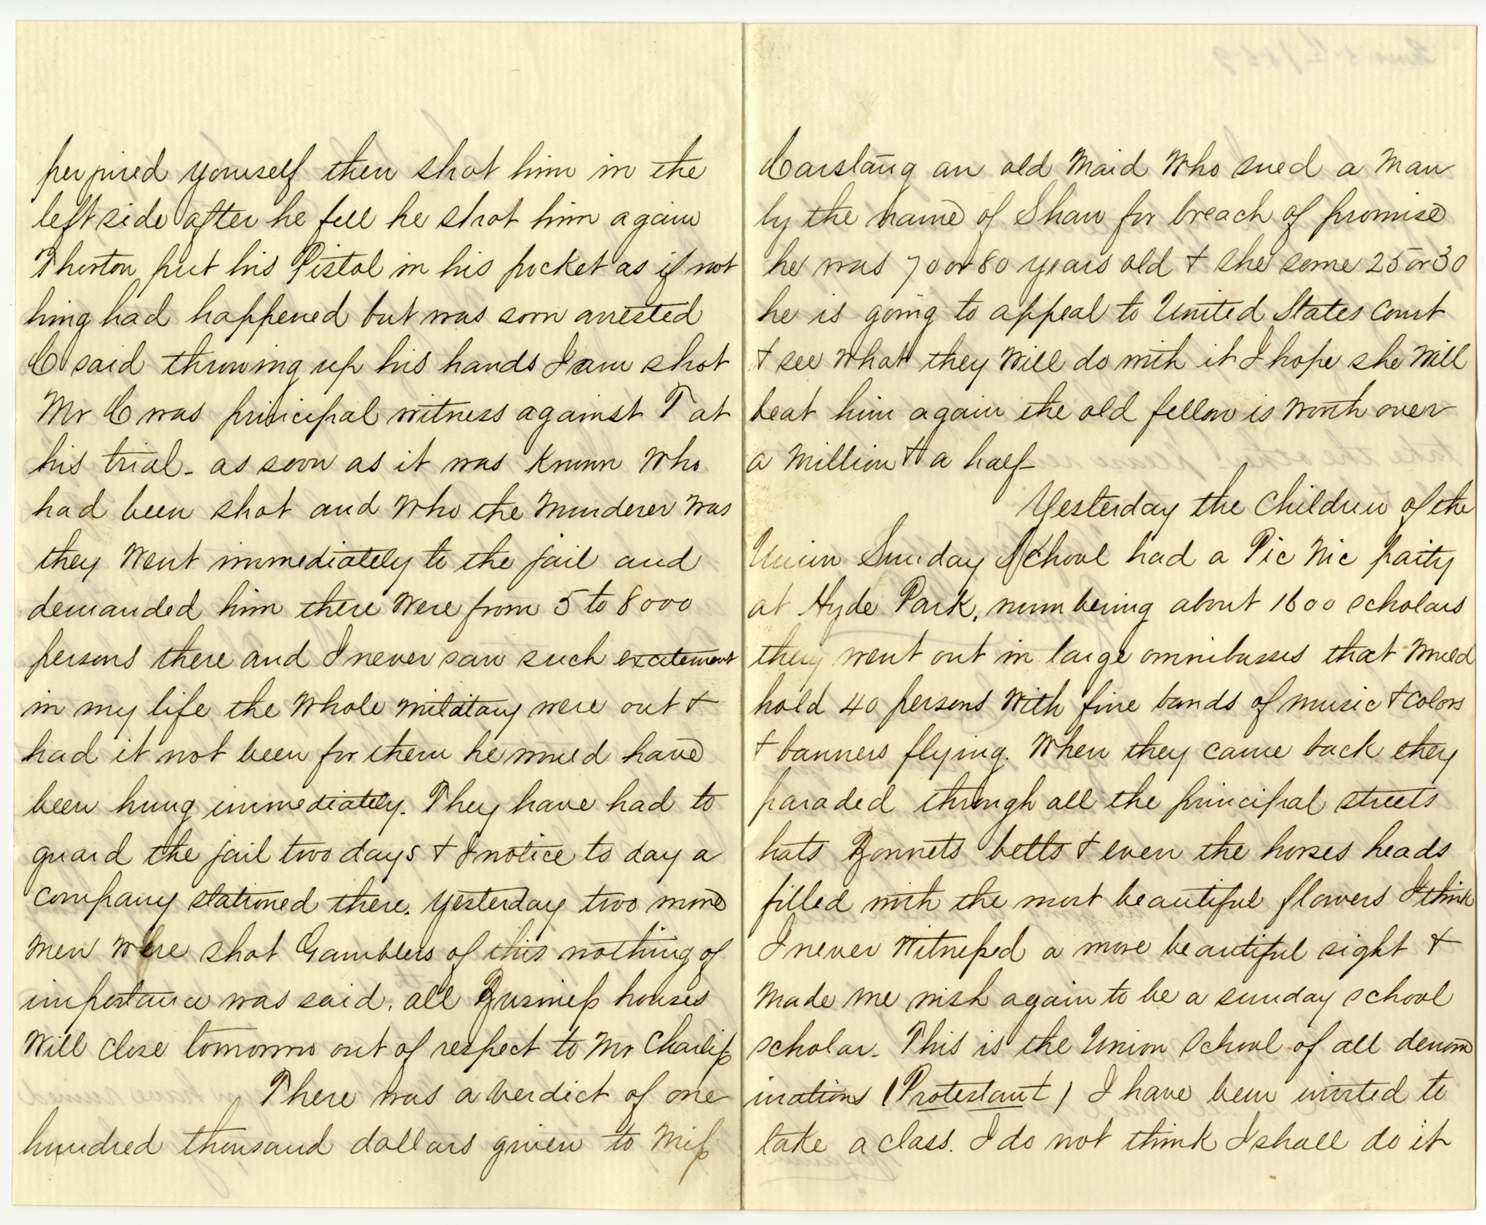 perjured yourself then shot him in the
left side after he fell he shot him again
Thorton put his Pistol in his pocket as if not
hing had happened but was soon arrested
C said throwing up his hands I am shot
Mr C was principal witness against T at
his trial - as soon as it was known who
had been shot and who the murderer was
they went immediately to the jail and
demanded him there were from 5 to 8000
persons there and I never saw such excitement
in my life the whole military were out +
had it not been for them he would have
been hung immediately. They have had to
guard the jail two days + I notice to day a
company stationed there. Yesterday two more
men were shot Gamblers of this nothing of
importance was said. all Business houses
will close tomorrow out of respect to Mr Charliss
There was a verdict of one
hundred thousand dollars given to Miss
Carstang an old maid who sued a man
by the name of Shaw for breach of promise
he was 70 or 80 years old + she some 25 or 30
he is going to appeal to United States Court
+ see what they will do with it I hope she will
beat him again the old fellow is worth over
a million + a half
Yesterday the children of the
Union Sunday School had a Pic Nic party
at Hyde Park, numbering about 1600 scholars
they went out in large omnibusses that would
hold 40 persons with fine bands of music + colors
+ banners flying. When they came back they
paraded through all the principal streets
hats Bonnets belts + even the horses heads
filled with the most beautiful flowers I think
I never witnessed a more beautiful sight +
made me wish again to be a sunday school
scholar. This is the Union School of all denom
inations (Protestant) I have been invited to
take a class. I do not think I shall do it